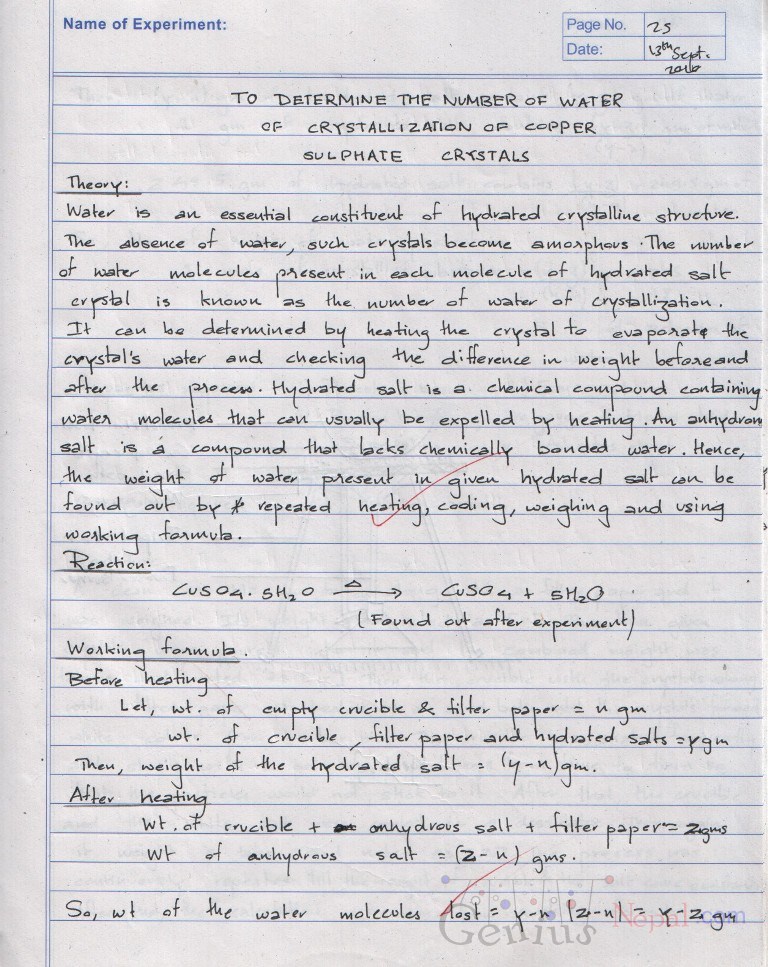 Name of Experiment:
Page No. 25
Date: 13th Sept. 2016
TO DETERMINE THE NUMBER OF WATER
OF CRYSTALLIZATION OF COPPER
SULPHATE CRYSTALS
Theory:
Water is an essential constituent of hydrated crystalline structure.
The absence of water, such crystals become amorphous. The number
of water molecules present in each molecule of hydrated salt
crystal is known as the number of water of crystallization.
It can be determined by heating the crystal to evaporate the
crystal's water and checking the difference in weight before and
after the process. Hydrated salt is a chemical compound containing
water molecules that can usually be expelled by heating. An anhydrous
salt is a compound that lacks chemically bonded water. Hence,
the weight of water present in given hydrated salt can be
found out by repeated heating, cooling, weighing and using
working formula.
Reaction:
CuSO4. 5H2O —Δ→ CuSO4 + 5H2O
(Found out after experiment)
Working formula.
Before heating
Let, wt. of empty crucible & filter paper = x gm
wt. of crucible, filter paper and hydrated salts = y gm
Then, weight of the hydrated salt = (y-x) gm.
After heating
Wt. of crucible + anhydrous salt + filter paper = z gms
Wt of anhydrous salt = (z-x) gms.
So, wt of the water molecules lost = y-x (z-x) = y-z gm
Genius Nepal.com